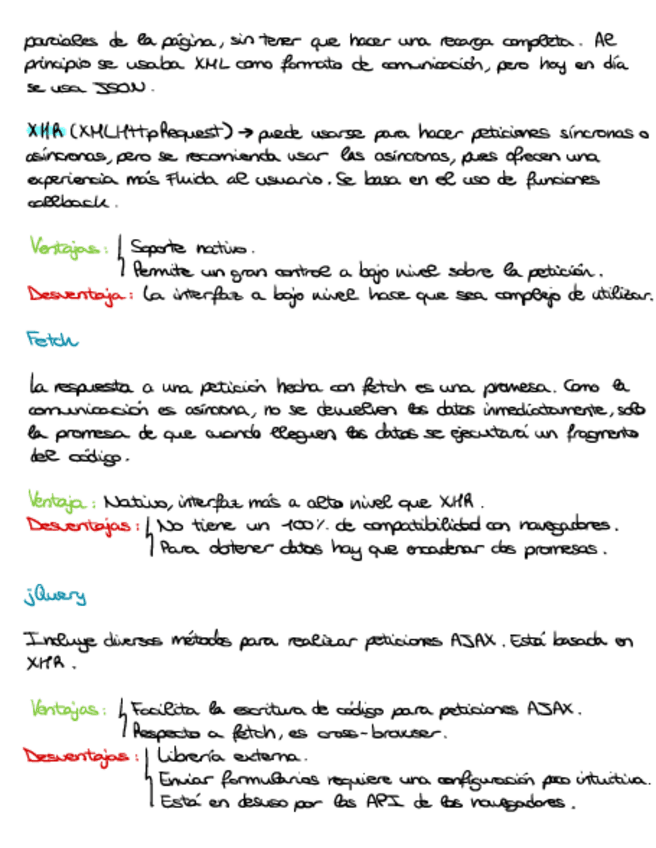 parciales de la página, sin tener que hacer una recarga completa. Al
principio se usaba XML como formato de comunicación, pero hoy en día
se usa JSON.
XHR (XMLHttpRequest) → puede usarse para hacer peticiones síncronas o
asíncronas, pero se recomienda usar las asíncronas, pues ofrecen una
experiencia más fluida al usuario. Se basa en el uso de funciones
callback.
Ventajas: Soporte nativo.
Permite un gran control a bajo nivel sobre la petición.
Desventaja: La interfaz a bajo nivel hace que sea complejo de utilizar.
Fetch
La respuesta a una petición hecha con fetch es una promesa. Como la
comunicación es asíncrona, no se devuelven los datos inmediatamente, solo
la promesa de que cuando lleguen los datos se ejecutará un fragmento
del código.
Ventaja: Nativo, interfaz más a alto nivel que XHR.
Desventajas: No tiene un 100% de compatibilidad con navegadores.
Para obtener datos hay que encadenar dos promesas.
jQuery
Incluye diversos métodos para realizar peticiones AJAX. Está basada en
XHR.
Ventajas: Facilita la escritura de código para peticiones AJAX.
Respecto a fetch, es cross-browser.
Desventajas: Librería externa.
Enviar formularios requiere una configuración poco intuitiva.
Está en desuso por las API de los navegadores.